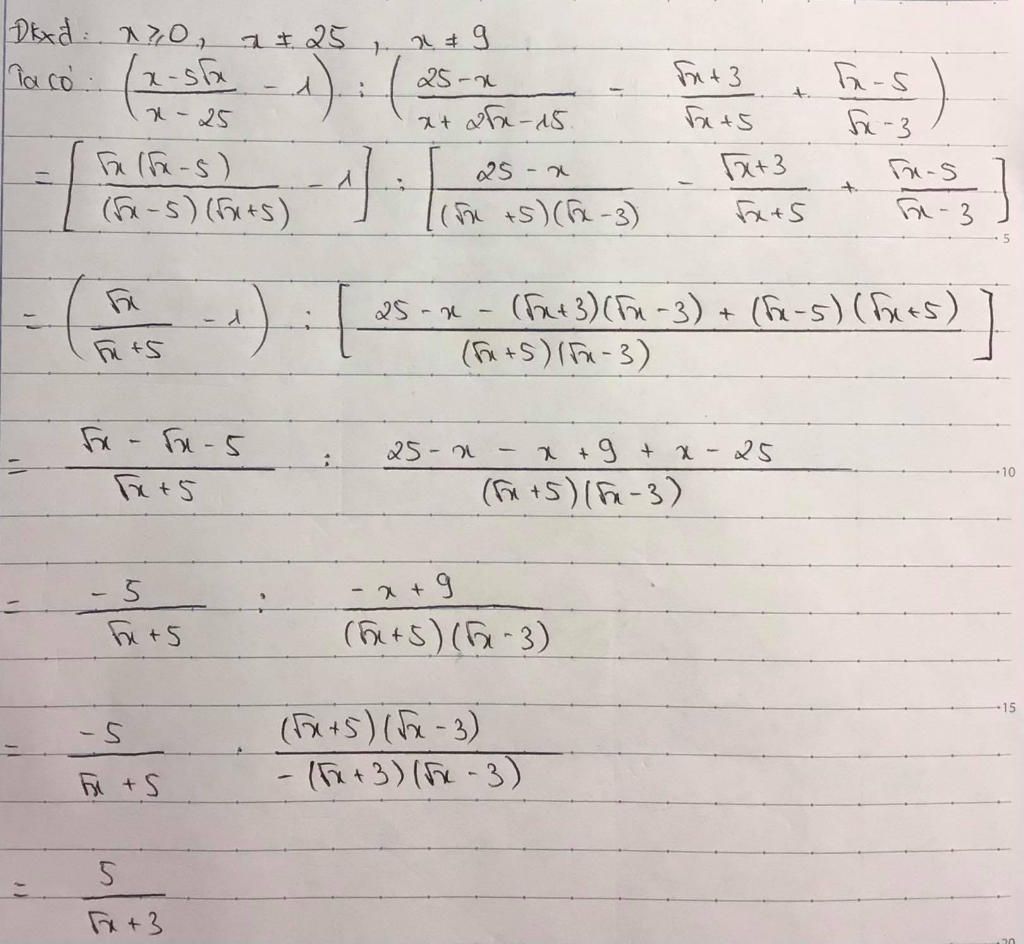 Đkxđ: x ⩾ 0, x ≠ 25, x ≠ 9
Ta có: ((x - 5√x)/(x - 25) - 1) : ((25 - x)/(x + 2√x - 15) - (√x + 3)/(√x + 5) + (√x - 5)/(√x - 3))
= [(√x (√x - 5))/((√x - 5)(√x + 5)) - 1] : [(25 - x)/((√x + 5)(√x - 3)) - (√x + 3)/(√x + 5) + (√x - 5)/(√x - 3)]
5
= (√x/(√x + 5) - 1) : [(25 - x - (√x + 3)(√x - 3) + (√x - 5)(√x + 5))/((√x + 5)(√x - 3))]
= (√x - √x - 5)/(√x + 5) : (25 - x - x + 9 + x - 25)/((√x + 5)(√x - 3))
10
= (-5)/(√x + 5) : (-x + 9)/((√x + 5)(√x - 3))
15
= (-5)/(√x + 5) . ((√x + 5)(√x - 3))/(-(√x + 3)(√x - 3))
= 5/(√x + 3)
20